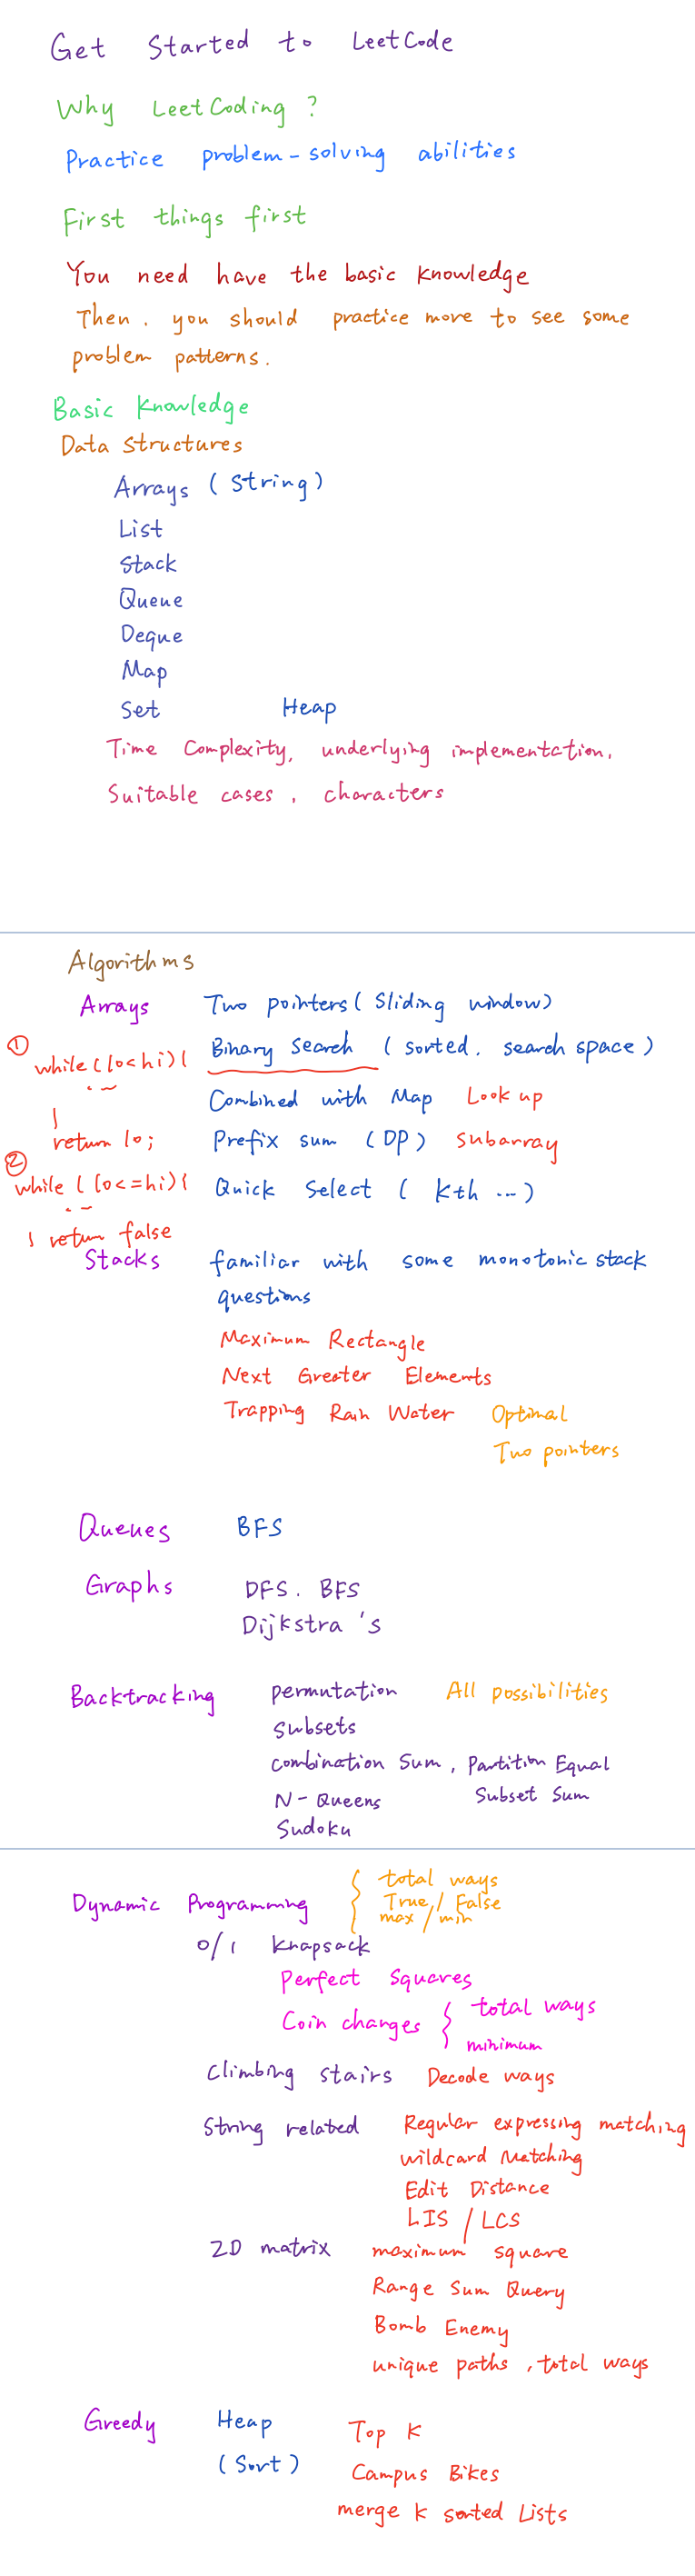 Get Started to LeetCode
Why LeetCoding ?
Practice problem-solving abilities
First things first
You need have the basic knowledge
Then. you should practice more to see some
problem patterns.
Basic Knowledge
Data Structures
Arrays ( String )
List
Stack
Queue
Deque
Map
Set Heap
Time Complexity, underlying implementation,
Suitable cases, characters
Algorithms
Arrays Two pointers ( Sliding window )
① while ( lo < hi ) { Binary Search ( sorted. search space )
Combined with Map Look up
}
return lo; Prefix sum ( DP ) Subarray
② while ( lo <= hi ) { Quick Select ( Kth ... )
} return false
Stacks familiar with some monotonic stack
questions
Maximum Rectangle
Next Greater Elements
Trapping Rain Water Optimal
Two pointers
Queues BFS
Graphs DFS. BFS
Dijkstra's
Backtracking permutation All possibilities
Subsets
Combination Sum, Partition Equal
N-Queens Subset Sum
Sudoku
Dynamic Programming { total ways
True / False
max / min
0/1 Knapsack
Perfect Squares
Coin changes { total ways
minimum
Climbing stairs Decode ways
String related Regular expressing matching
wildcard Matching
Edit Distance
LIS / LCS
2D matrix maximum square
Range Sum Query
Bomb Enemy
unique paths, total ways
Greedy Heap Top K
( Sort ) Campus Bikes
merge k sorted Lists